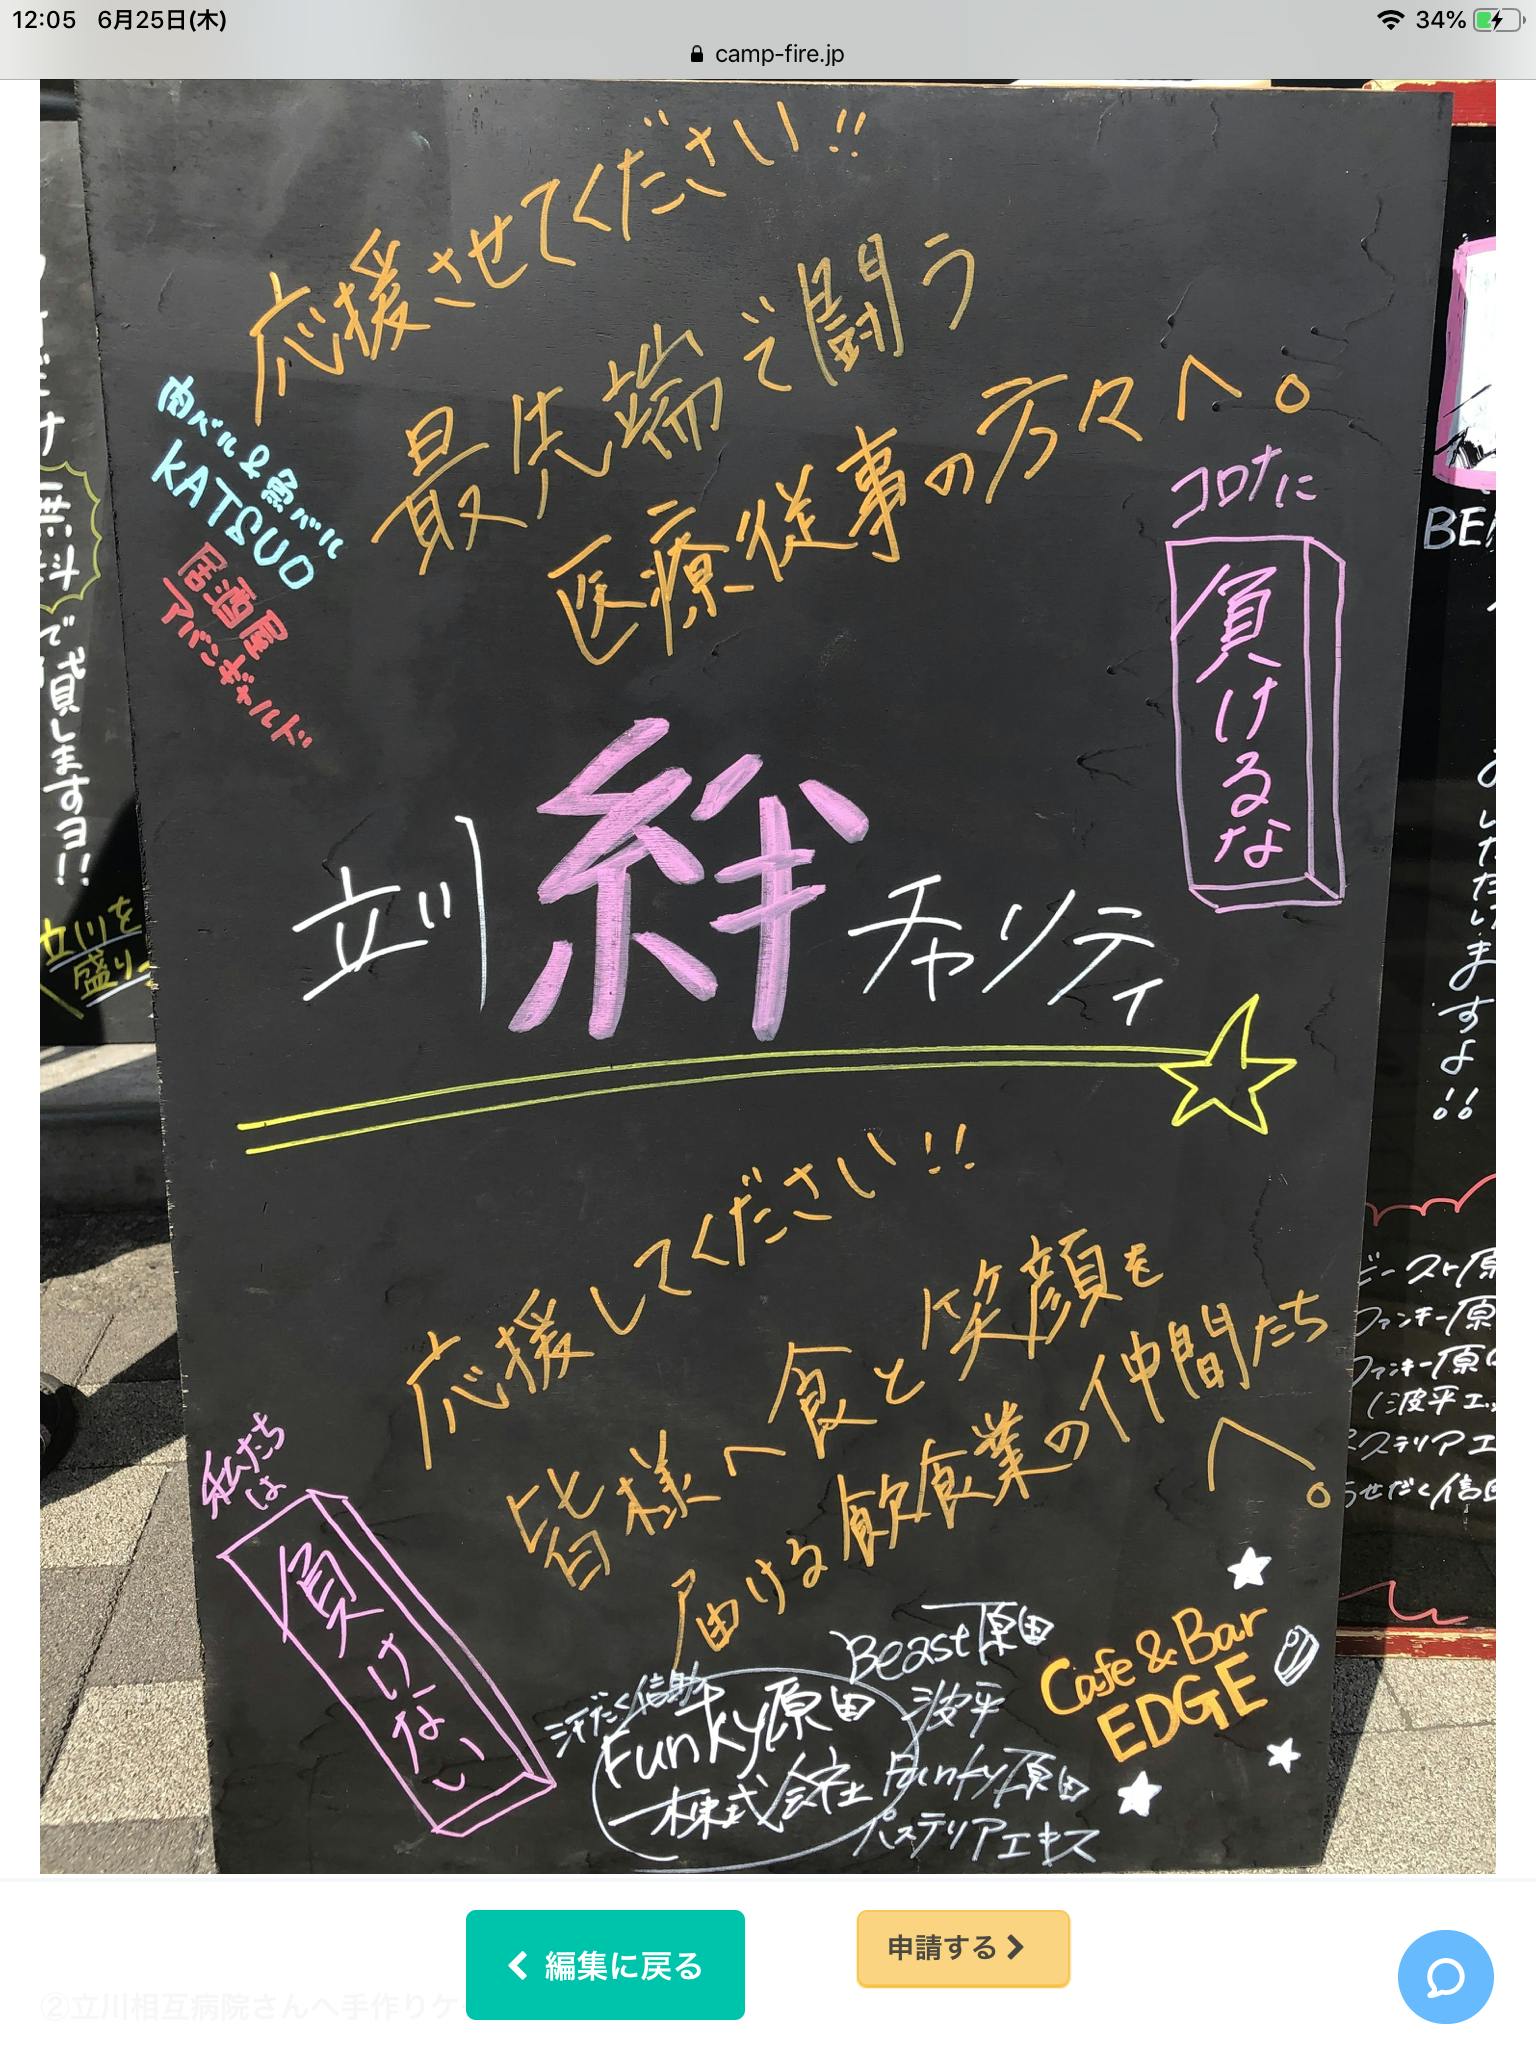 12:05 6月25日(木)
34%
camp-fire.jp
応援させてください!!
最先端で闘う
医療従事の方々へ。
肉バル&魚バル
KATSUO
居酒屋
アバンギャルド
コロナに
負けるな
立川絆チャリティ
応援してください!!
皆様へ食と笑顔を
届ける飲食業の仲間たち
へ。
私たち
は
負けない
汗だく信助
Funky原田
株式会社
Beast原田
波平
Funky原田
パステリアエキス
Cafe & Bar
EDGE
無料で貸しますヨ!!
立川を
盛り
BE
いただいますよ!!
ビースト原
ファンキー原
ファンキー原
(波平エ
ステリアエ
せだく信
編集に戻る
申請する
②立川相互病院さんへ手作りケ